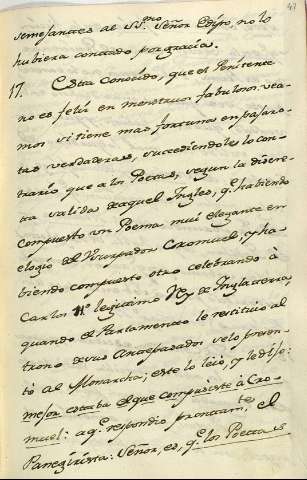 47
semejantes al SS.mo Señor Edipo, no lo
hubiera contado por gracias.
17. Esta conocido, que el Penitente
no es feliz en monstruos fabulosos, vea-
mos si tiene mas fortuna en pajaro-
tas verdaderas, sucediendole lo con-
trario que a los Poetas, segun la discre-
ta salida de aquel Ingles, q.e habiendo
compuesto un Poema mui elegante en
elogio del Usurpador Cromuel, y ha-
biendo compuesto otro celebrando à
Carlos II.o legitimo Rey de Inglaterra,
quando el Parlamento le restituió al
trono de sus Antepasados se lo presen-
tó al Monarcha; este lo leió, y le dijo:
mejor estaba el que compusiste à Cro-
muel: a q.e respondio prontam.te el
Panegirista: Señor, es, q.e los Poetas